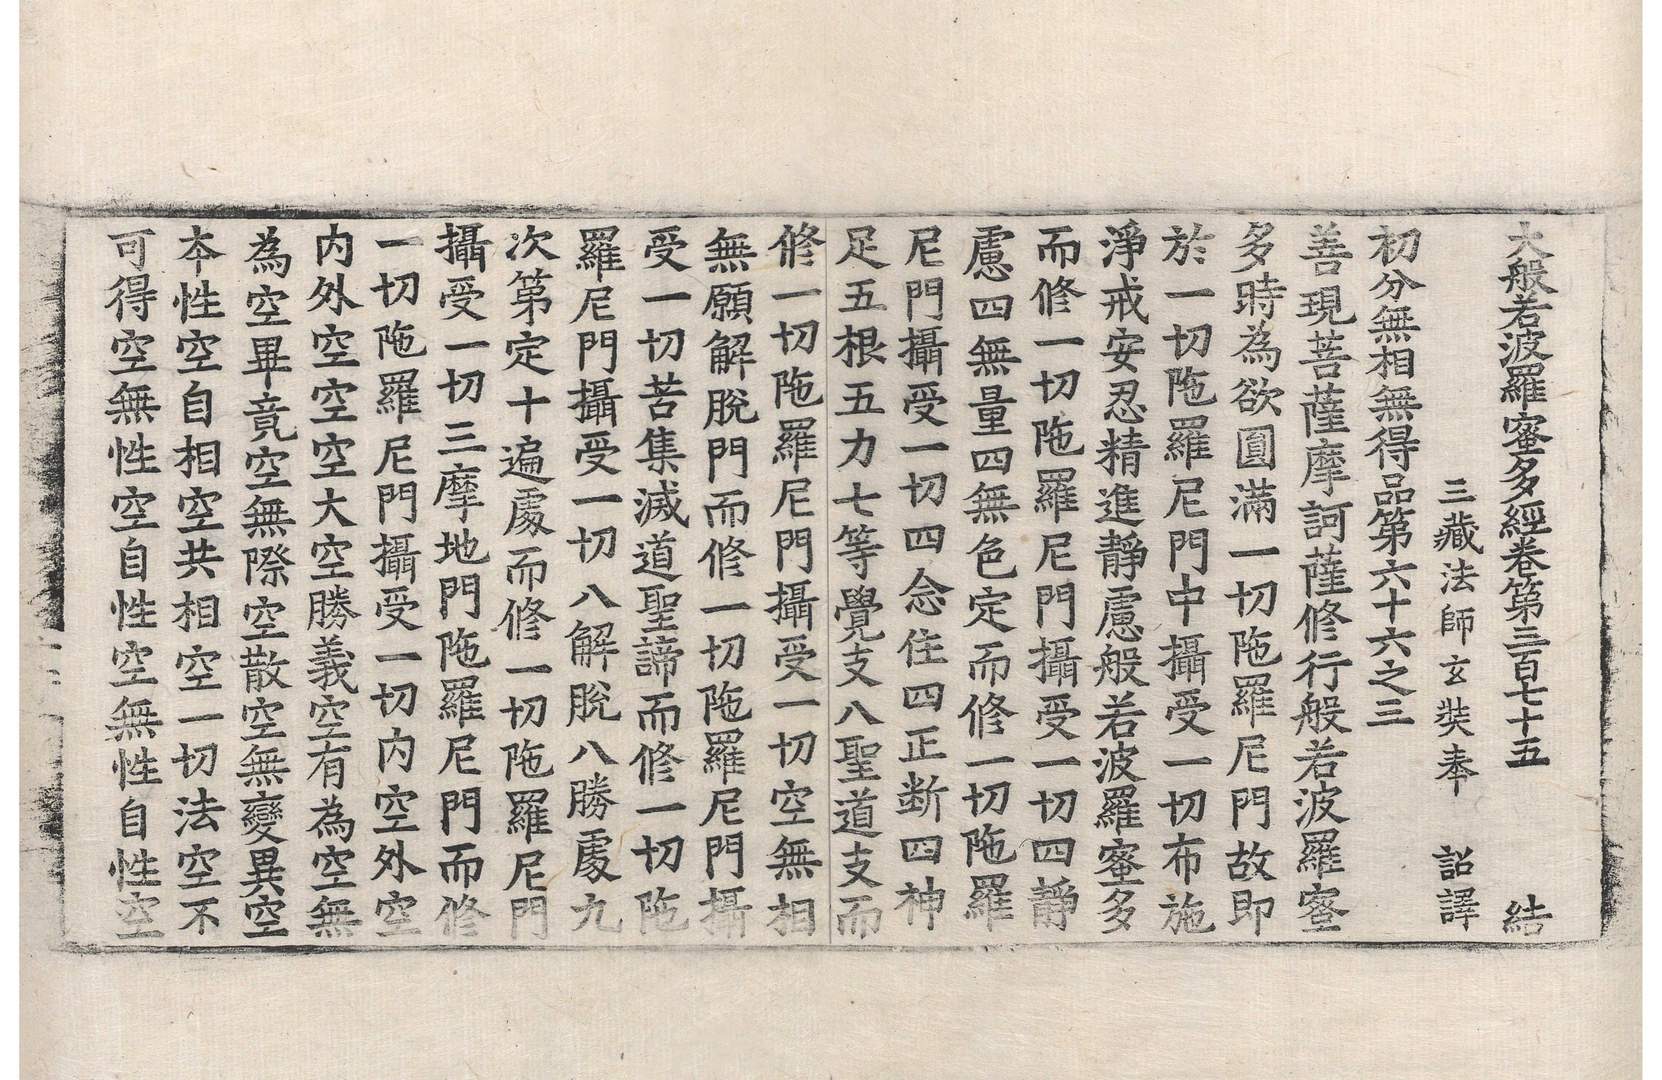 大般若波羅蜜多經卷第三百七十五　結
三藏法師玄奘奉　詔譯
初分無相無得品第六十六之三
善現菩薩摩訶薩修行般若波羅蜜
多時為欲圓滿一切陁羅尼門故即
於一切陁羅尼門中攝受一切布施
淨戒安忍精進靜慮般若波羅蜜多
而修一切陁羅尼門攝受一切四靜
慮四無量四無色定而修一切陁羅
尼門攝受一切四念住四正断四神
足五根五力七等覺支八聖道支而
修一切陁羅尼門攝受一切空無相
無願解脫門而修一切陁羅尼門攝
受一切苦集滅道聖諦而修一切陁
羅尼門攝受一切八解脫八勝處九
次第定十遍處而修一切陁羅尼門
攝受一切三摩地門陁羅尼門而修
一切陁羅尼門攝受一切內空外空
內外空空空大空勝義空有為空無
為空畢竟空無際空散空無變異空
本性空自相空共相空一切法空不
可得空無性空自性空無性自性空